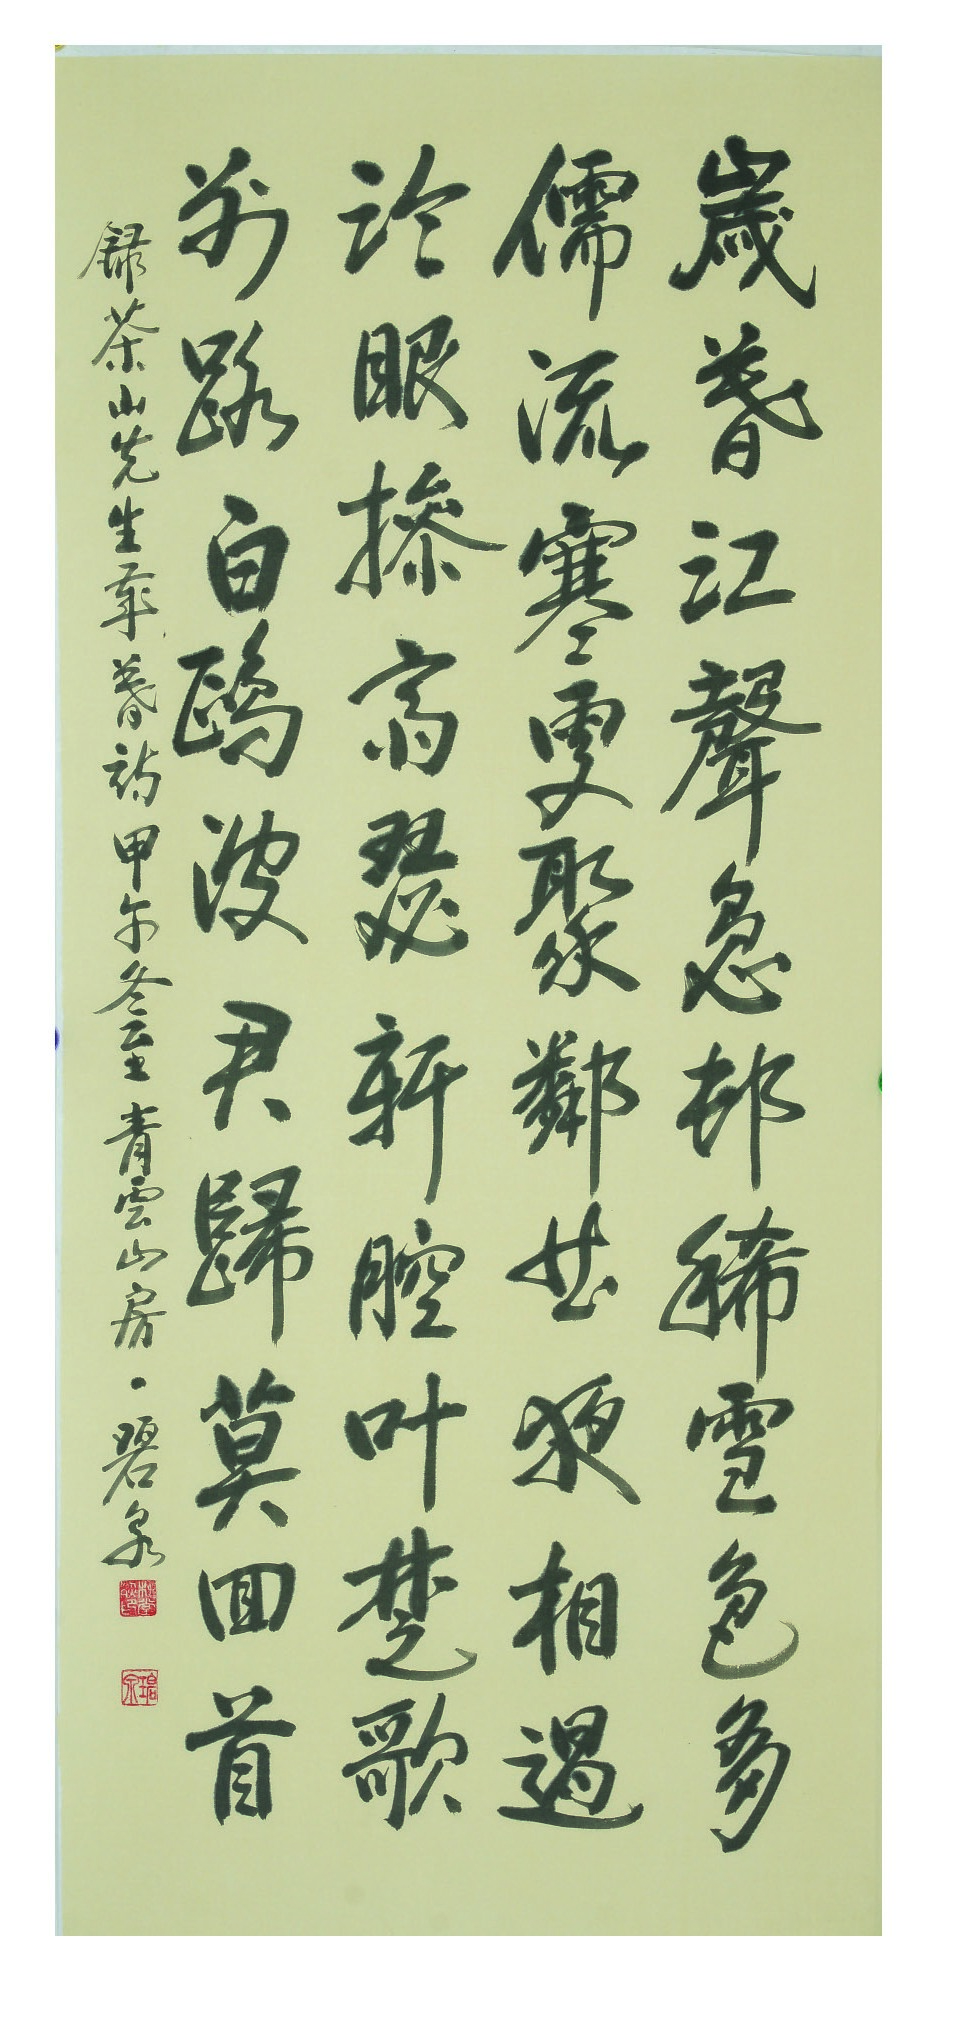 歲暮江聲急邨稀雪色多
儒流寒更聚鄰並夜相過
眼摻齊瑟新腔叶楚歌
前路白鷗波君歸莫回首
錄茶山先生歲暮詩甲午冬至青雲山房碧泉